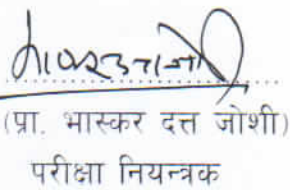 (प्रा. भास्कर दत्त जोशी)
परीक्षा नियन्त्रक